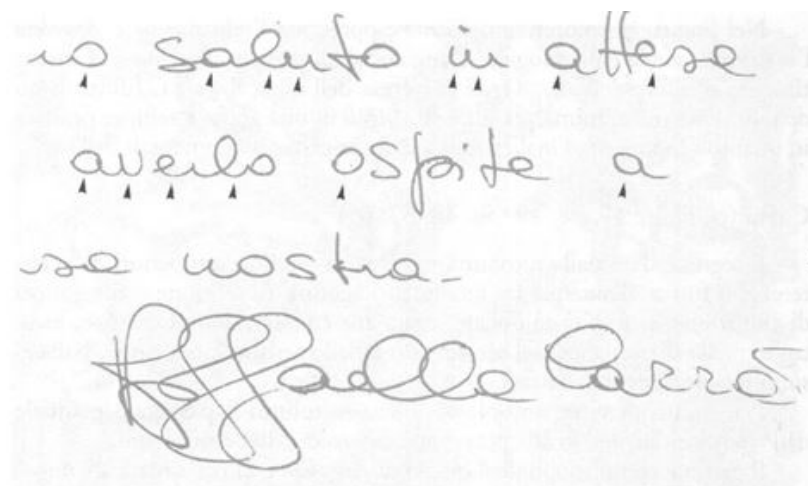 io saluto in attesa
averlo ospite a
sa nostra
Raffaella Carrà